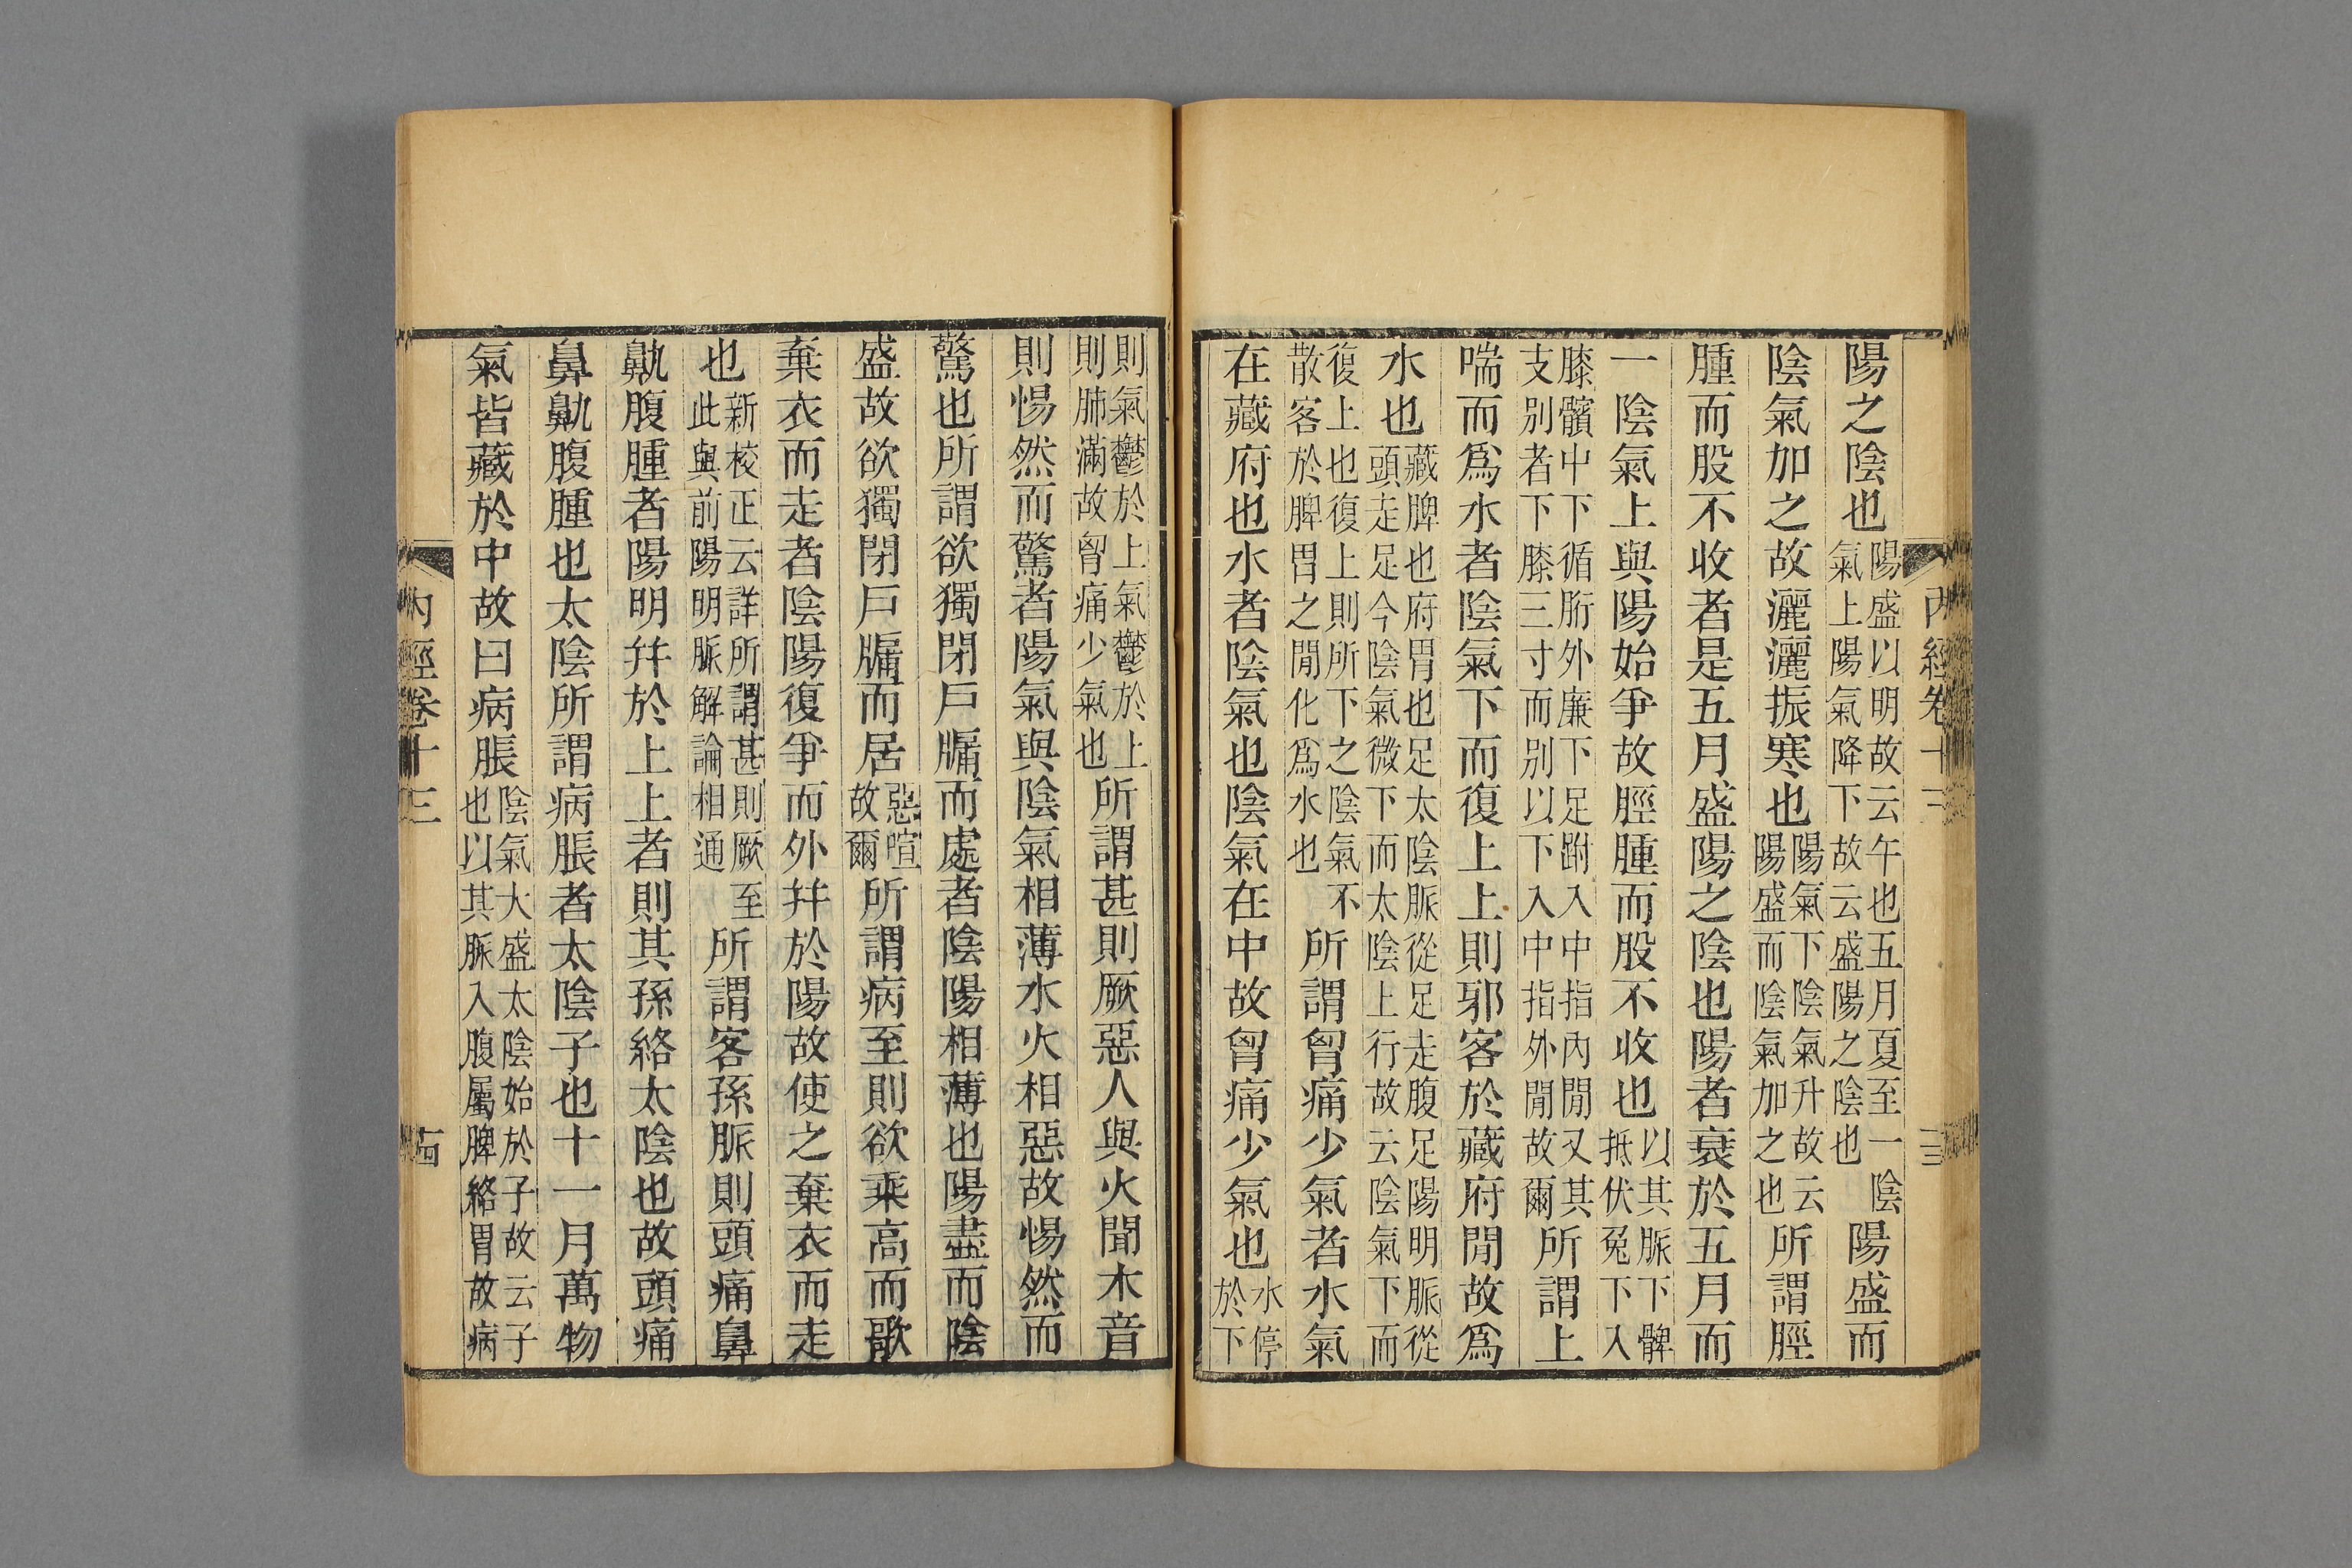 內經卷十三
陽之陰也陽盛以明故云午也五月夏至一陰氣上陽氣降下故云盛陽之陰也陽盛而
陰氣加之故灑灑振寒也陽氣下陰氣升故云陽盛而陰氣加之也所謂脛
腫而股不收者是五月盛陽之陰也陽者衰於五月而
一陰氣上與陽始爭故脛腫而股不收也以其脈下髀抵伏兔下入
膝髕中下循䯒外廉下足跗入中指內閒又其支別者下膝三寸而別以下入中指外閒故爾所謂上
喘而爲水者陰氣下而復上上則邪客於藏府閒故爲
水也藏脾也府胃也足太陰脈從足走腹足陽明脈從頭走足今陰氣微下而太陰上行故云陰氣下而
復上也復上則所下之陰氣不散客於脾胃之閒化爲水也所謂胷痛少氣者水氣
在藏府也水者陰氣也陰氣在中故胷痛少氣也水停於下
則氣鬱於上氣鬱於上則肺滿故胷痛少氣也所謂甚則厥惡人與火聞木音
則惕然而驚者陽氣與陰氣相薄水火相惡故惕然而
驚也所謂欲獨閉戶牖而處者陰陽相薄也陽盡而陰
盛故欲獨閉戶牖而居惡喧故爾所謂病至則欲乘高而歌
棄衣而走者陰陽復爭而外幷於陽故使之棄衣而走
也新校正云詳所謂甚則厥至此與前陽明脈解論相通所謂客孫脈則頭痛鼻
鼽腹腫者陽明幷於上上者則其孫絡太陰也故頭痛
鼻鼽腹腫也太陰所謂病脹者太陰子也十一月萬物
氣皆藏於中故曰病脹陰氣大盛太陰始於子故云子也以其脈入腹屬脾絡胃故病
內經卷十三